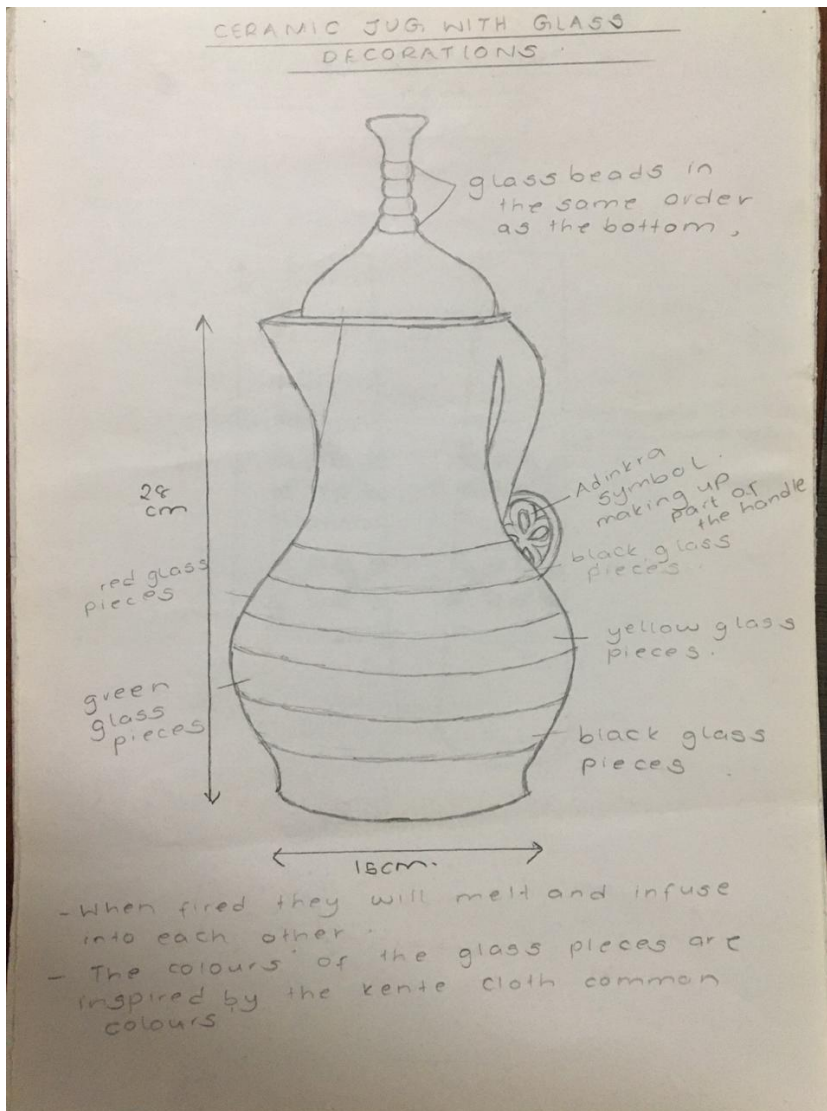 CERAMIC JUG WITH GLASS
DECORATIONS.
glass beads in
the same order
as the bottom,
28
cm
Adinkra
symbol.
making up
part of
the handle
black glass
pieces.
red glass
pieces
yellow glass
pieces.
green
glass
pieces
black glass
pieces.
15cm.
- When fired they will melt and infuse
into each other.
- The colours of the glass pieces are
inspired by the kente cloth common
colours